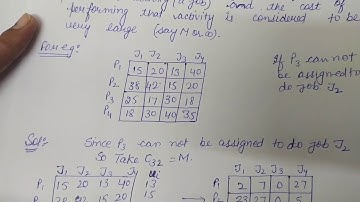 performing that activity is considered to be
very large (say M or ∞).
For eg:
J₁ J₂ J₃ J₄
P₁ 15 20 13 40
P₂ 38 42 15 20
P₃ 25 17 30 18
P₄ 18 30 40 35
If P₃ can not
be assigned to
do job J₂
Solⁿ: Since P₃ can not be assigned to do job J₂
So Take C₃₂ = M.
J₁ J₂ J₃ J₄
P₁ 15 20 13 40 13
15 20 15
J₁ J₂ J₃ J₄
P₁ 2 7 0 27
P₂ 23 27 0 5